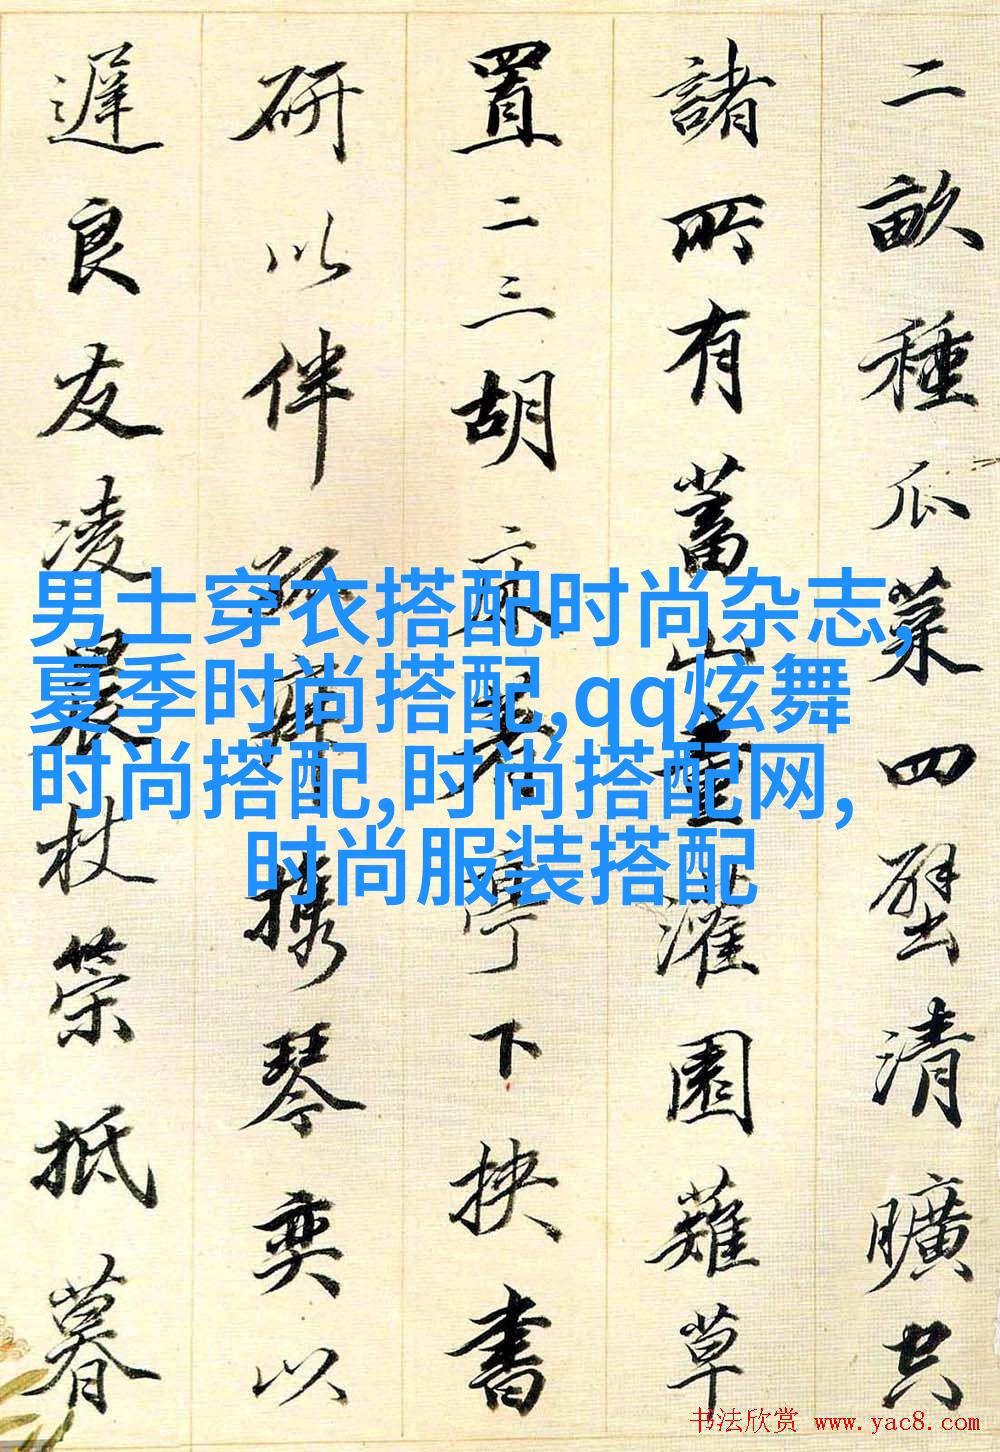 二畝種瓜菜四壁清曠共
諸所有蓄山童灌園薙草
置二三胡床著亭下挾書
研以伴孤寂攜琴奕以
遲良友凌晨杖策抵暮
男士穿衣搭配时尚杂志,
夏季时尚搭配,qq炫舞
时尚搭配,时尚搭配网,
时尚服装搭配
书法欣赏 www.yac8.com